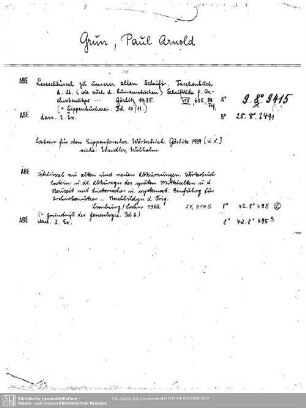 Grün, Paul Arnold
ABE Leseschlüssel zu unserer alten Schrift. Taschenbuch
d. dt. (wie auch d. humanistischen) Schriftkde f. Ar-
chivbenützer ... Görlitz 1935. 8° 9. 8° 9415
(= Sippenbücherei. Bd 10/11)
ABE dass. 2. Ex. 8° 25. 8° 2491
Latein für den Sippenforscher. Görlitz 1939
siehe: Weidler, Wilhelm
ABE Schlüssel zu alten und neuen Abkürzungen. Wörterbuch
latein. u. dt. Abkürzgn des späten Mittelalters u. d.
Neuzeit mit historischer u. systemat. Einführg für
Archivbenützer ... Nachbildgn d. Orig.
Limburg/Lahn 1966. 8° 42. 8° 498
(= Grundriß der Genealogie. Bd 6)
dass. 2. Ex. 8° 42. 8° 495
Sächsische Landesbibliothek -
Staats- und Universitätsbibliothek Dresden